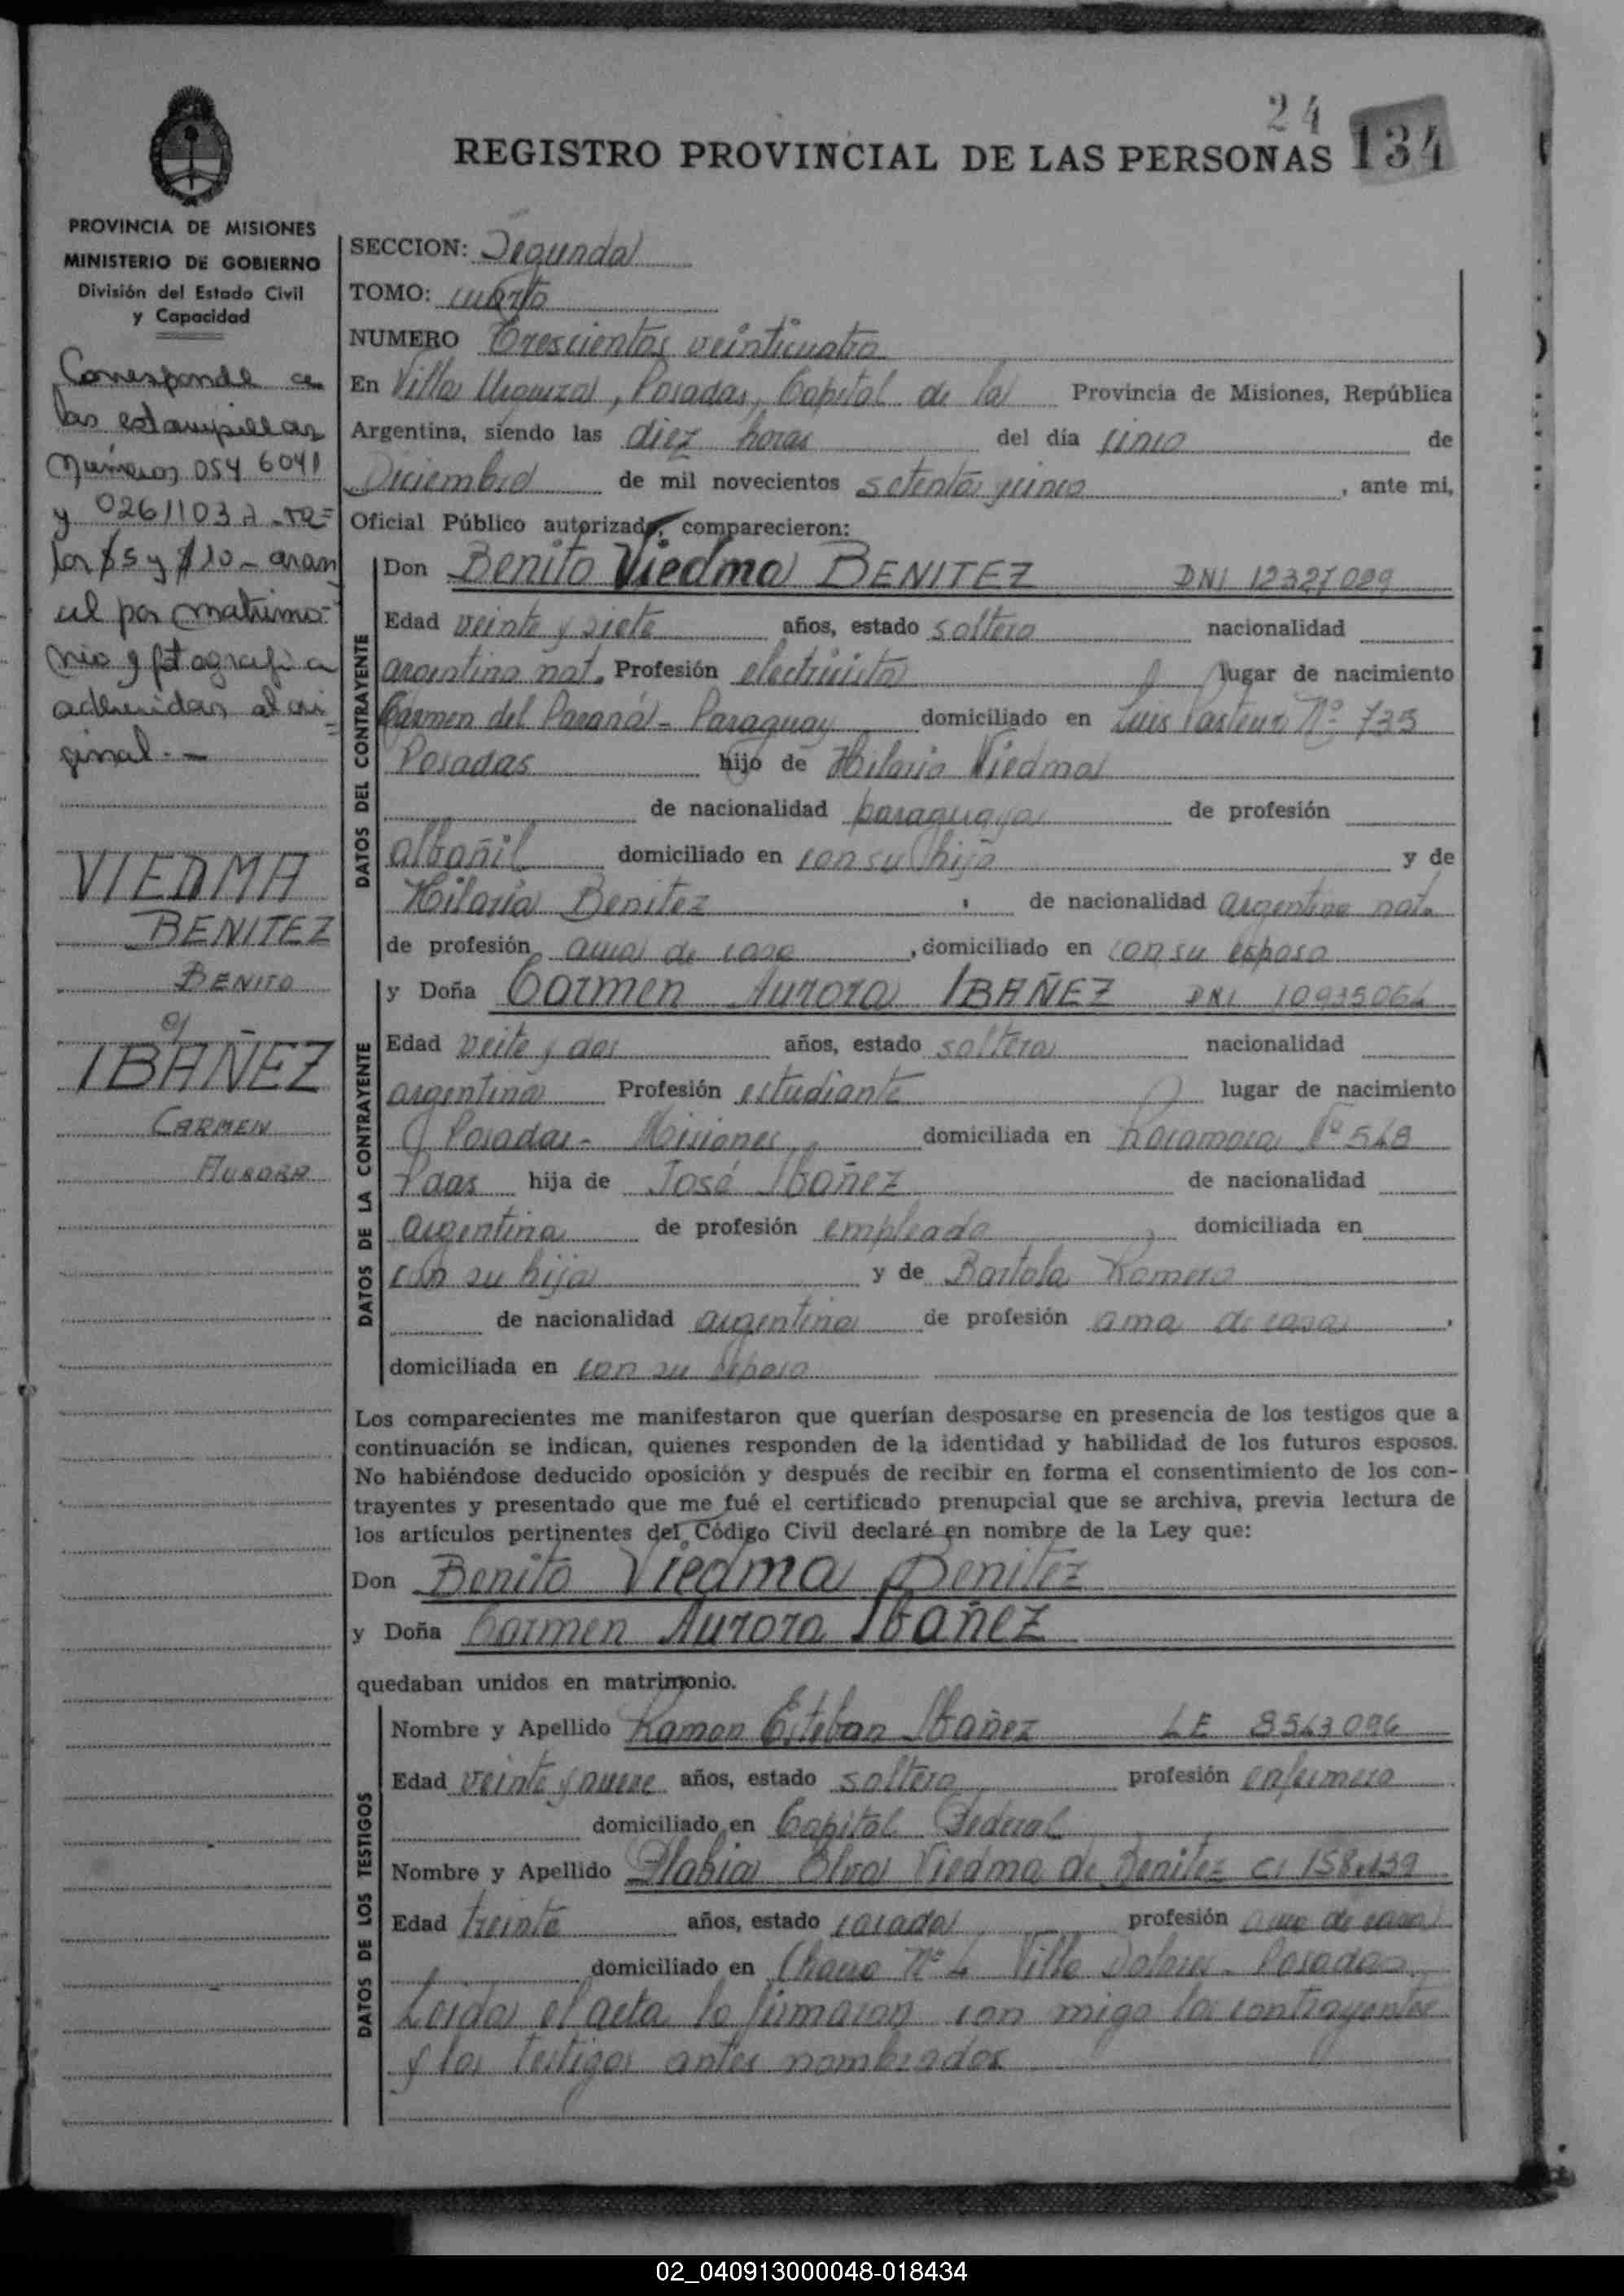 24
REGISTRO PROVINCIAL DE LAS PERSONAS 134
PROVINCIA DE MISIONES
MINISTERIO DE GOBIERNO
División del Estado Civil
y Capacidad
Corresponde a
las estampillas
números 054 6041
y 02611032
por $5 y $10 - aran
cel por matrimo-
nio y fotografia
adheridas al ori
ginal.-
VIEDMA
BENITEZ
BENITO
c/
IBAÑEZ
CARMEN
AURORA
SECCION: Segunda
TOMO: cuarto
NUMERO Trescientos veinticuatro
En Villa Urquiza, Posadas, Capital de la Provincia de Misiones, República
Argentina, siendo las diez horas del día cinco de
Diciembre de mil novecientos setenta y cinco, ante mi,
Oficial Público autorizado, comparecieron:
DATOS DEL CONTRAYENTE
Don Benito Viedma BENITEZ DNI 12327029
Edad veinte y siete años, estado soltero nacionalidad
argentino nat. Profesión electricista lugar de nacimiento
Carmen del Paraná - Paraguay domiciliado en Luis Pasteur Nº 735
Posadas hijo de Hilario Viedma
de nacionalidad paraguaya de profesión
albañil domiciliado en con su hijo y de
Hilaria Benitez de nacionalidad argentina nat.
de profesión ama de casa, domiciliado en con su esposo
DATOS DE LA CONTRAYENTE
y Doña Carmen Aurora IBAÑEZ DNI 10935064
Edad veite y dos años, estado soltera nacionalidad
argentina Profesión estudiante lugar de nacimiento
Posadas - Misiones domiciliada en Rocamora Nº 548
Pdas hija de José Ibañez de nacionalidad
argentina de profesión empleado domiciliada en
con su hija y de Bartola Romero
de nacionalidad argentina de profesión ama de casa,
domiciliada en con su esposo
Los comparecientes me manifestaron que querían desposarse en presencia de los testigos que a
continuación se indican, quienes responden de la identidad y habilidad de los futuros esposos.
No habiéndose deducido oposición y después de recibir en forma el consentimiento de los con-
trayentes y presentado que me fué el certificado prenupcial que se archiva, previa lectura de
los artículos pertinentes del Código Civil declaré en nombre de la Ley que:
Don Benito Viedma Benitez
y Doña Carmen Aurora Ibañez
quedaban unidos en matrimonio.
DATOS DE LOS TESTIGOS
Nombre y Apellido Ramon Esteban Ibañez LE 8543096
Edad veinte y nueve años, estado soltero profesión enfermero
domiciliado en Capital Federal
Nombre y Apellido Elva Viedma de Benitez CI 158.139
Edad treinta años, estado casada profesión ama de casa
domiciliado en Chacra Nº 4 Villa Dolores - Posadas.
Leida el acta la firmaron con migo los contrayentes
y los testigos antes nombrados
02_040913000048-018434